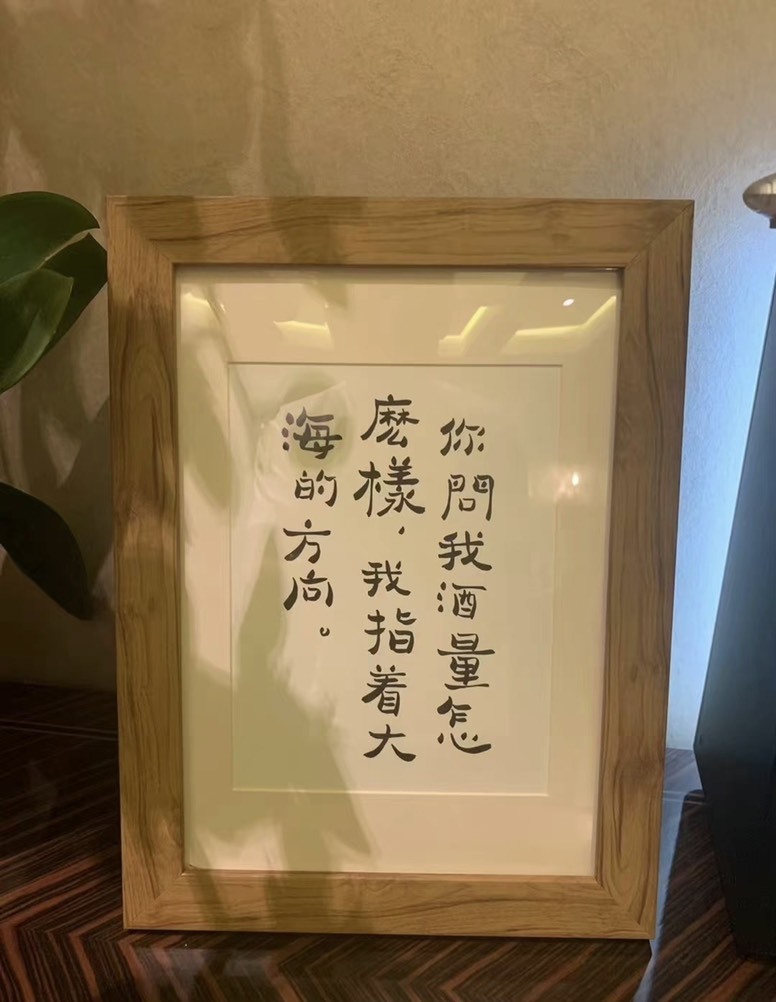 你問我酒量怎
麽樣，我指着大
海的方向。